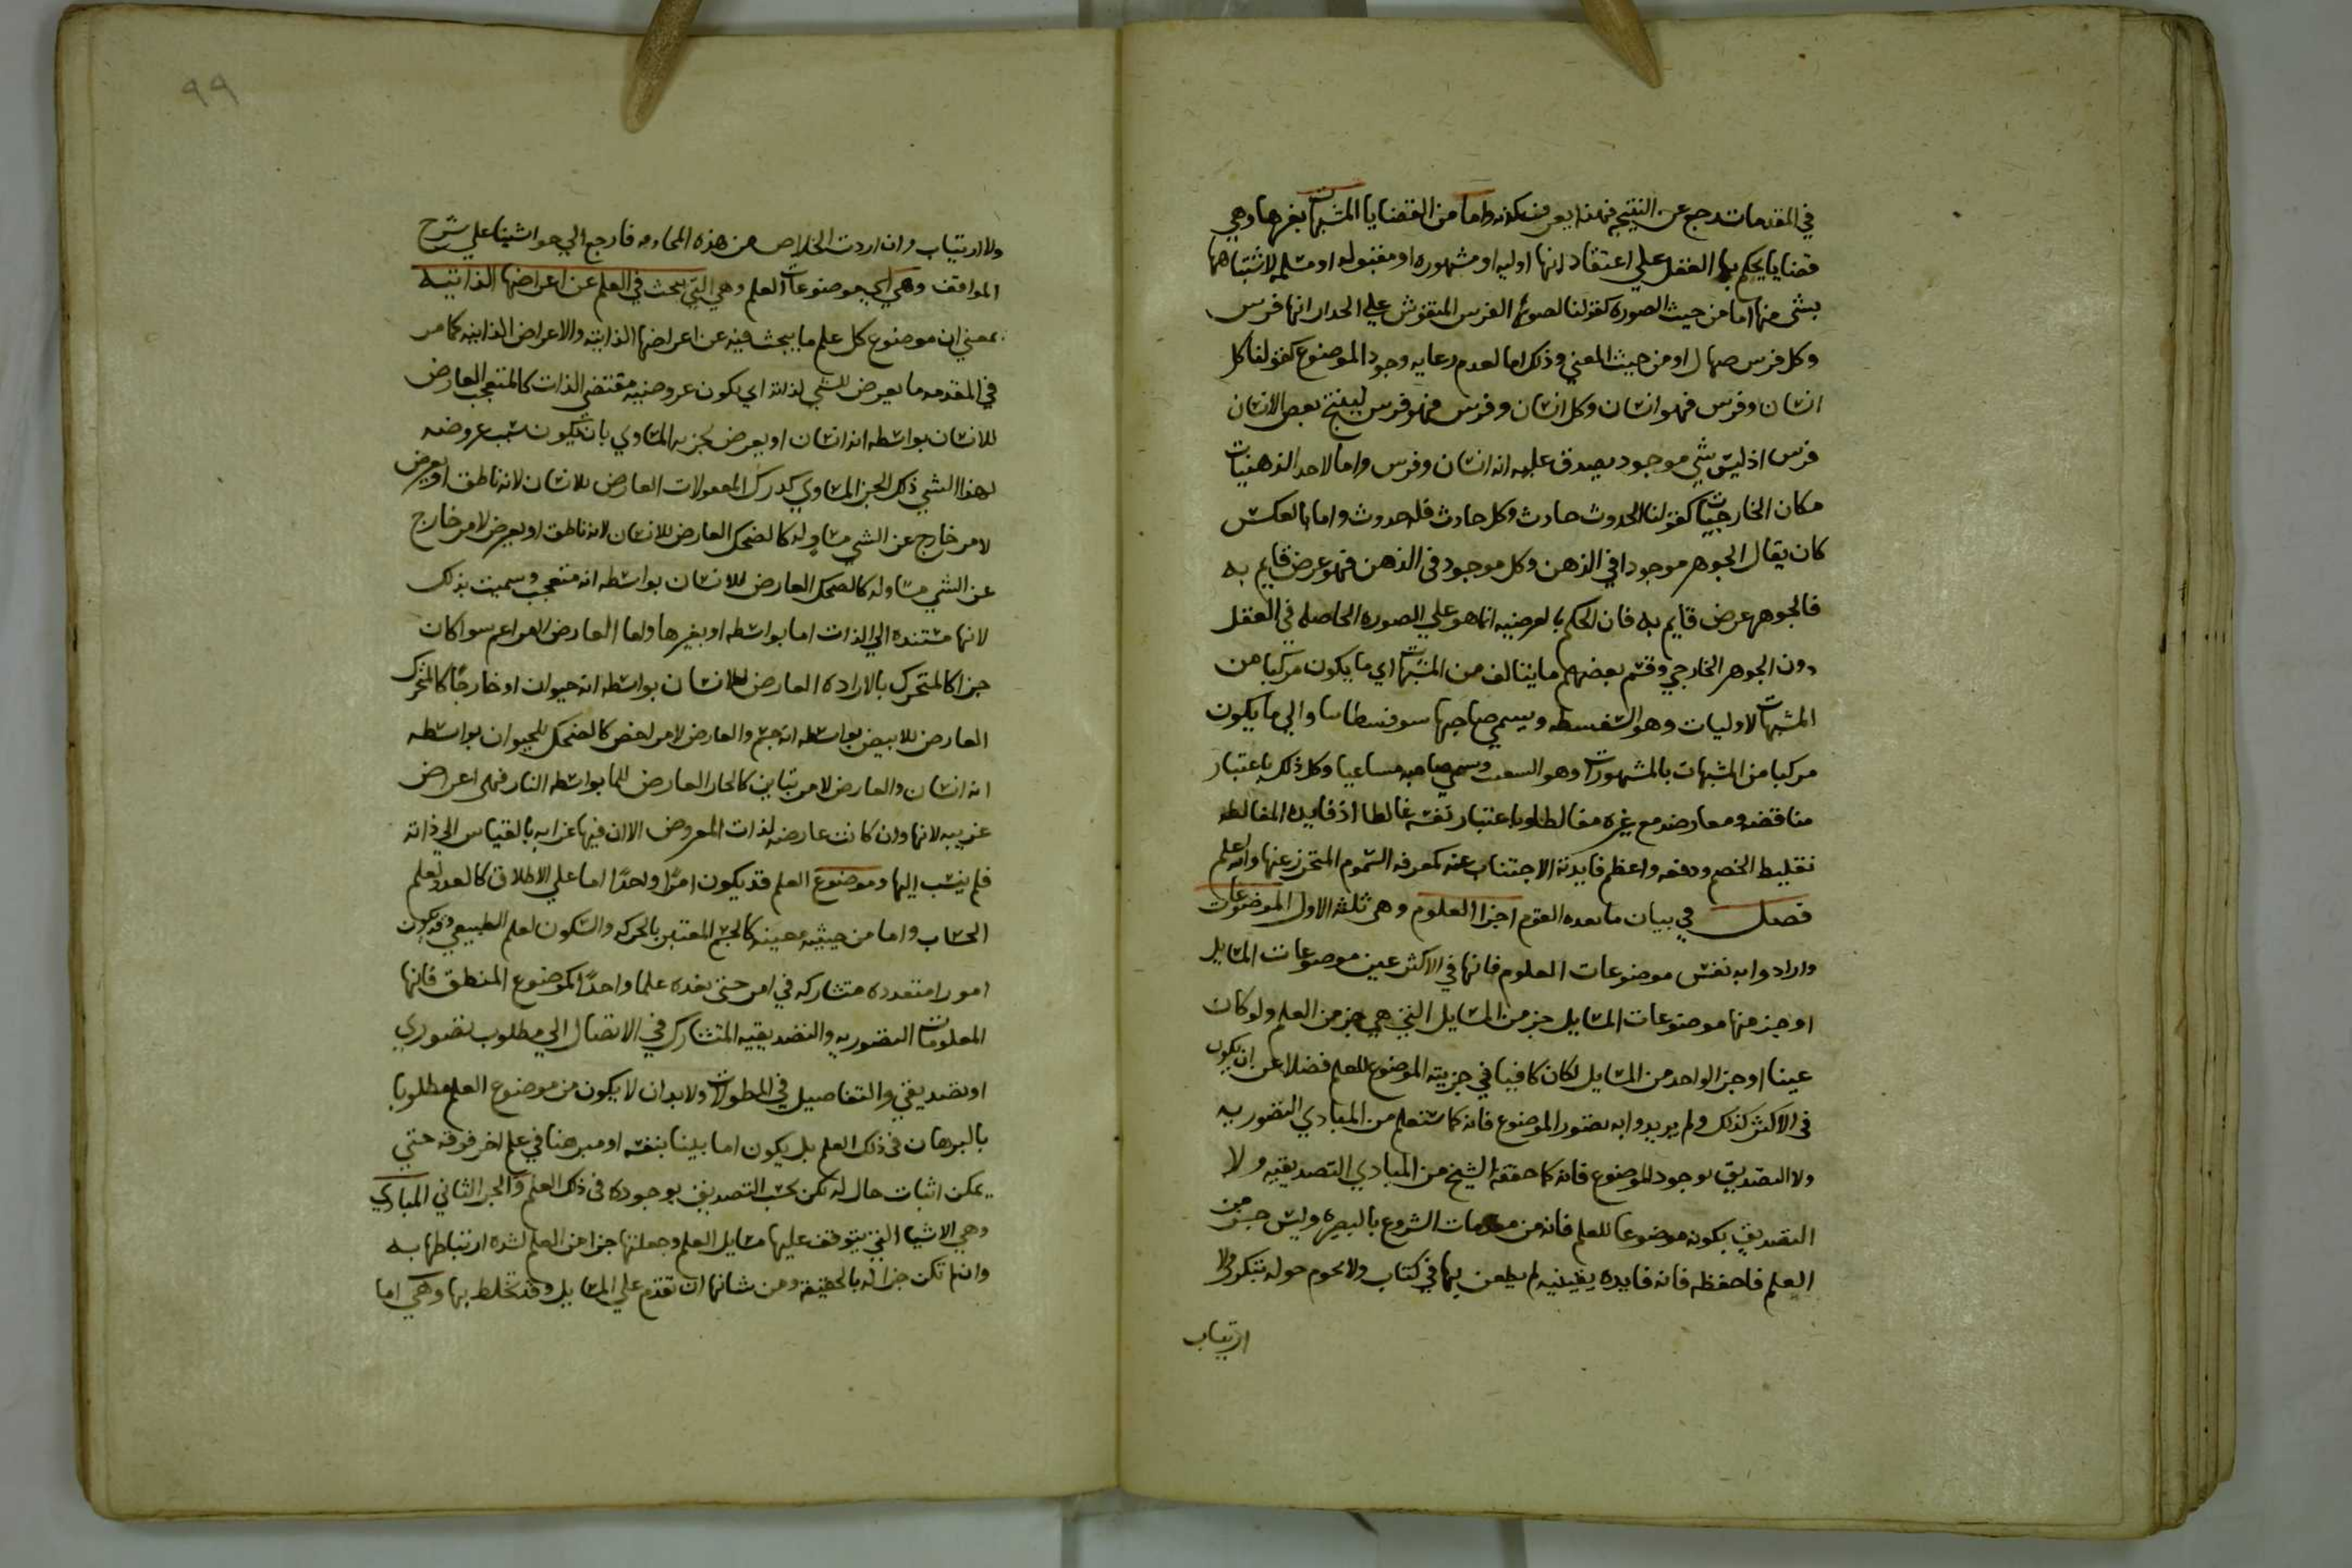 في المقدمات درج عن النتيجة فهذا يعرفنكونه واما من القضايا المشبهات بغيرها وهي
قضايا يحكم بها العقل على اعتقاد انها اوليه او مشهوره او مقبوله او مسلمه لاشتباهها
بشى منها اما من حيث الصورة كقولنا لصورة الفرس المنقوش علي الجدار انها فرس
وكل فرس صهال او من حيث المعني وذلك اما لعدم رعايه وجود الموضوع كقولنا كل
انسان وفرس فهو انسان وكل انسان وفرس فهو فرس لينتج بعض الانسان
فرس اذ ليس شي موجود يصدق عليه انه انسان وفرس واما لاخذ الذهنيات
مكان الخارجيات كقولنا الحدوث حادث وكل حادث فله حدوث واما بالعكس
كان يقال الجوهر موجود في الذهن وكل موجود في الذهن فهو عرض قايم به
فالجوهر عرض قايم به فان الحكم بالعرضيه انما هو علي الصوره الحاصله في العقل
دون الجوهر الخارجي وقسم بعضهم ما يتالف من المشبهات اي ما يكون مركبا من
المشبهات لاوليات وهو السفسطه ويسمي صاحبها سوفسطاىىا والي ما يكون
مركبا من المشبهات بالمشهورات وهو السعب ويسمي صاحبه مساعبيا وكل ذلك باعتبار
مناقضه ومعارضه مع غيره مغالطا وباعتبار نفسه غالطا اذ فايده المغالطه
تغليط الخصم ودفعه واعظم فايدته الاجتناب عنه كمعرفه السموم المتحرز عنها والله اعلم
فصل في بيان ما يعده القوم اجزا العلوم وهي ثلثه الاول الموضوعات
وارادوا به نفس موضوعات العلوم فانها في الاكثر عين موضوعات المسايل
او جز منها موضوعات المسايل جز من المسايل التي هي جز من العلم ولو كان
عينا او جز الواحد من المسايل لكان كافيا في جزيته الموضوع للعلم فضلا عن ان يكون
في الاكثر كذلك ولم يريدوا به تصور الموضوع فانه كما ستعلم من المبادي التصوريه
ولا التصديق بوجود الموضوع فانه كما حققه الشيخ من المبادي التصديقيه ولا
التصديق بكونه موضوعا للعلم فانه من مقدمات الشروع بالبصيره وليس جز من
العلم فاحفظه فانه فايده يقينيه لم يطعن بها في كتاب ولا يحوم حوله شك ولا
ارتياب
٩٩
ولا ارتياب وان اردت الخلاص من هذه المحاومه فارجع الي حواشينا علي شرح
المواقف وهي اي موضوعات العلم وهي التي يبحث في العلم عن اعراضها الذاتيه
بمعني ان موضوع كل علم ما يبحث فيه عن اعراضها الذاتيه والاعراض الذاتيه كما مر
في المقدمه ما يعرض للشي لذاته اي يكون عروضه مقتضي الذات كالمتعجب العارض
للانسان بواسطه انه انسان او يعرض لجزيه المساوي بان يكون سبب عروضه
لهذا الشي ذلك الجز المساوي كدرك المعقولات العارض للانسان لانه ناطق او يعرض
لامر خارج عن الشي مساو له كالضحك العارض للانسان لانه ناطق او يعرض لامر خارج
عن الشي مساو له كالضحك العارض للانسان بواسطه انه متعجب وسميت بذلك
لانها مستنده الي الذات اما بواسطه او بغيرها واما العارض لامر اعم سوا كان
جزا كالمتحرك بالاراده العارض للانسان بواسطه انه حيوان او خارجًا كالمتحرك
العارض للابيض بواسطه انه جسم والعارض لامر اخص كالضحك للحيوان بواسطه
انه انسان والعارض لامر يباين كالحار العارض للما بواسطه النار فهي اعراض
غريبه لانها وان كانت عارضه لذات المعروض الا ان فيها غرابه بالقياس الي ذاته
فلم ينسب اليها وموضوع العلم قد يكون امرًا واحدًا اما علي الاطلاق كالعدد لعلم
الحساب واما من حيثيه معينه كالجسم المعتبر بالحركه والسكون لعلم الطبيعي وقد يكون
امورا متعدده متشاركه في امر حتي تعده علما واحدًا كموضوع المنطق فانها
المعلومات التصوريه والتصديقيه المتشارك في الايصال الي مطلوب تصوري
او تصديقي والتفاصيل في المطولات ولا بد ان لا يكون من موضوع العلم مطلوبا
بالبرهان في ذلك العلم بل يكون اما بينا بنفسه او مبرهنا في علم اخر فوقه حتي
يمكن اثبات حال له لكن يجب التصديق بوجوده في ذلك العلم والجز الثاني المبادي
وهي الاشيا التي يتوقف عليها مسايل العلم وجعلتها جزا من العلم لشده ارتباطها به
وان لم تكن جزا له بالحقيقه ومن شانها ان تقدم علي المسايل وقد تخلط بها وهي اما